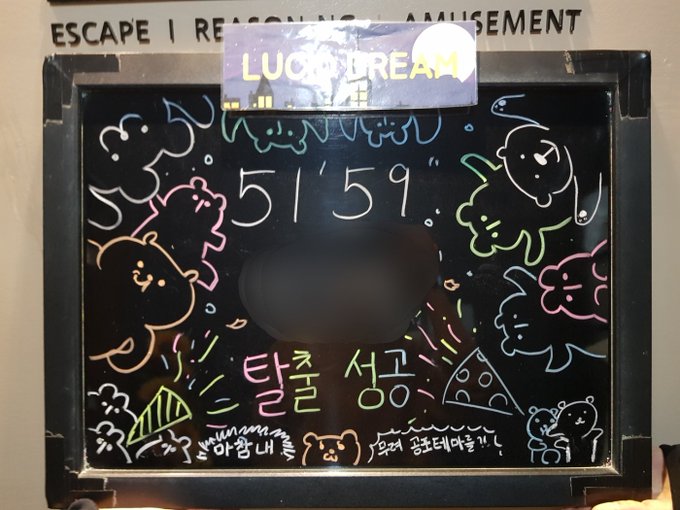 ESCAPE | REASONING | AMUSEMENT
LUCID DREAM
51'59"
탈출 성공
마침내
무려 공포테마를 깬!